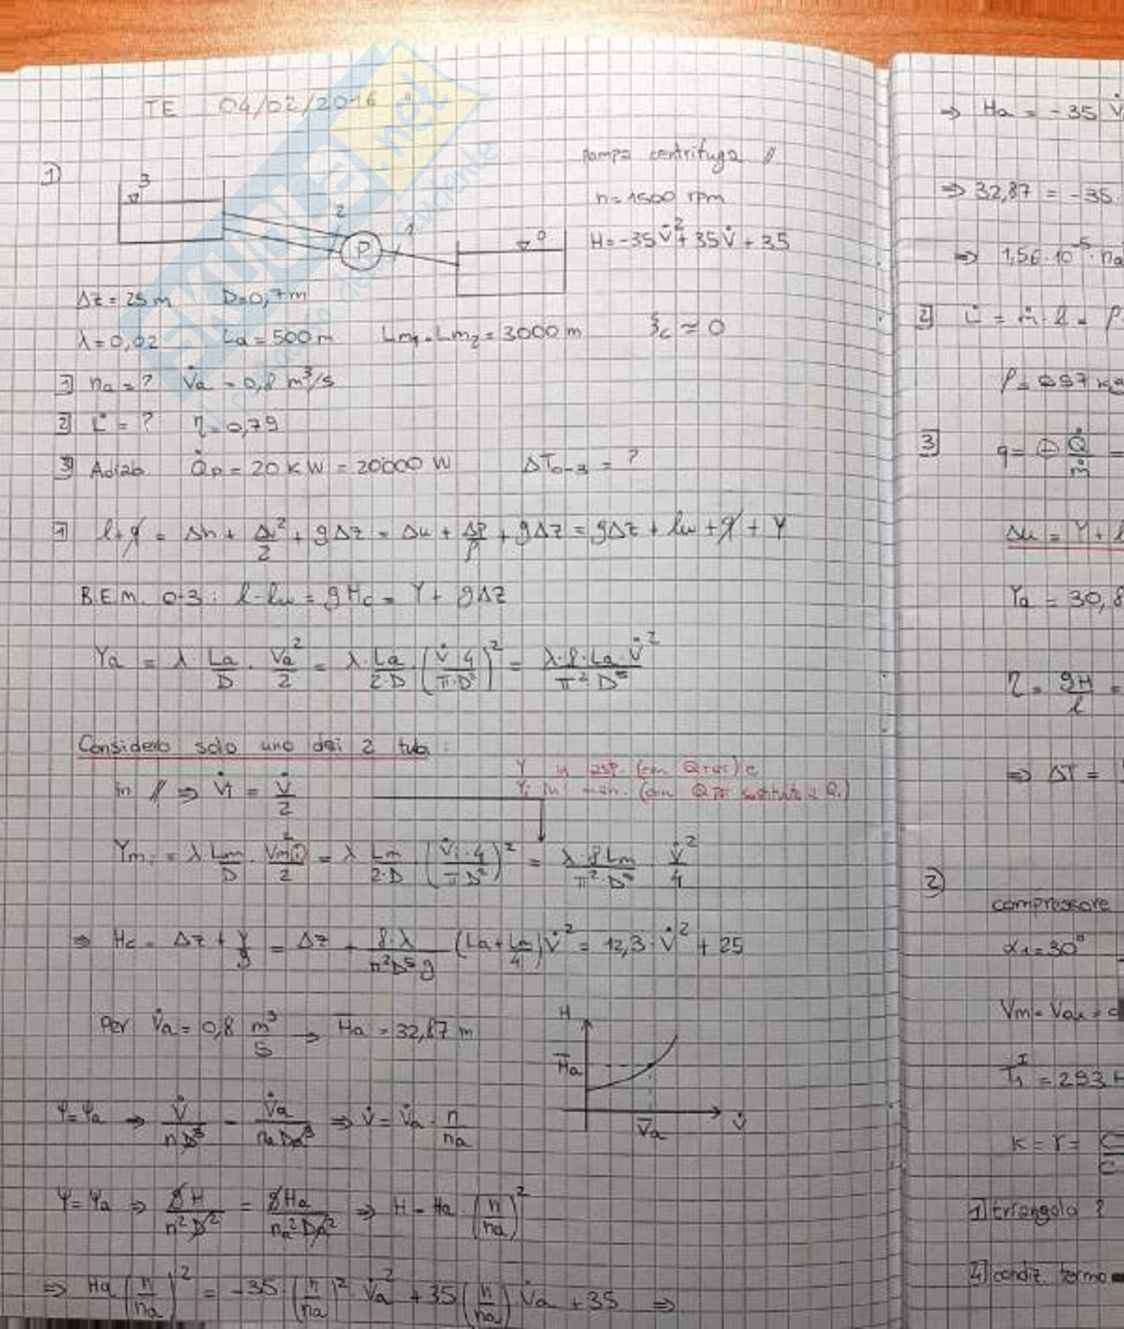 TE 04/02/2016
SKUOLA.net
1)
3
2
1
0
P
pompa centrifuga //
n = 1500 rpm
H = -35 V̇² + 35 V̇ + 35
Δz = 25 m D = 0,7 m
λ = 0,02 La = 500 m Lm₁ = Lm₂ = 3000 m ξc ≈ 0
1] na = ? V̇a = 0,8 m³/s
2] L̇ = ? η = 0,79
3] Adiab. Q̇p = 20 kW = 20000 W ΔT₀₋₃ = ?
1] l + q = Δh + Δv²/2 + gΔz = Δu + Δp/ρ + gΔz = gΔz + lw + q + Y
B.E.M. 0-3 : l - lw = gHc = Y + gΔz
Ya = λ La/D · Va²/2 = λ · La/(2·D) · (V̇·4/(π·D²))² = λ·8·La·V̇²/(π²·D⁵)
Considero solo uno dei 2 tubi :
in // ⇒ V̇₁ = V̇/2
Ymᵢ = λ Lm/D · Vmᵢ²/2 = λ Lm/(2·D) (V̇ᵢ·4/(πD²))² = λ·8·Lm/(π²·D⁵) V̇²/4
⇒ Hc = Δz + Y/g = Δz + 8·λ/(π²D⁵g) (La + Lm/4) V̇² = 12,3·V̇² + 25
Per V̇a = 0,8 m³/s → Ha = 32,87 m
H
Ha
V̇a
V̇
φ = φa ⇒ V̇/(nD³) = V̇a/(naDa³) ⇒ V̇ = V̇a · n/na
Ψ = Ψa ⇒ gH/(n²D²) = gHa/(na²Da²) ⇒ H = Ha · (n/na)²
⇒ Ha (n/na)² = -35 (n/na)² V̇a² + 35 (n/na) V̇a + 35 ⇒
⇒ Ha = -35 V̇
⇒ 32,87 = -35
⇒ 1,56·10⁻⁵·na
2] L̇ = ṁ·l = ρ
ρ = 997 kg
3] q = ⊕ Q̇/ṁ =
Δu = Y + l
Ya = 30,8
η = gH/l =
⇒ ΔT =
2)
compressore
α₁ = 30°
Vm = Vau = c
T₁ᴵ = 293 K
k = γ =
1] triangolo ?
2] condiz. termo